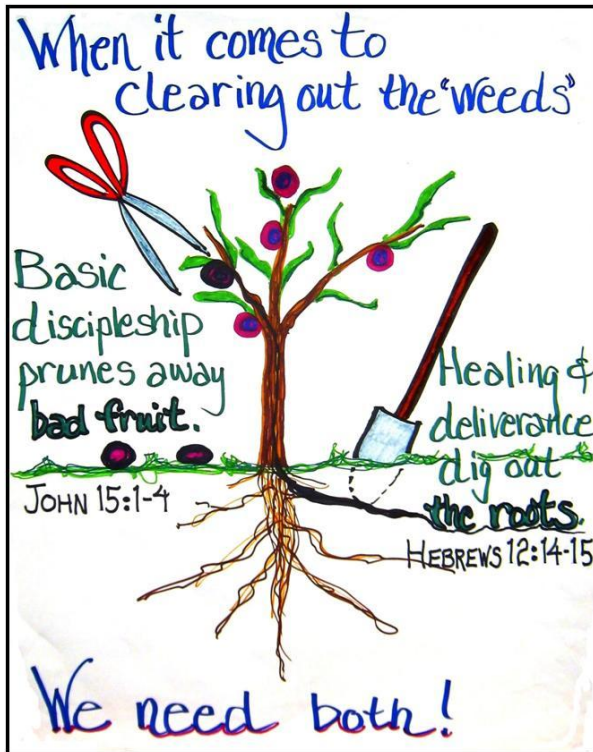 When it comes to
clearing out the "weeds"
Basic
discipleship
prunes away
bad fruit.
JOHN 15:1-4
Healing &
deliverance
dig out
the roots.
HEBREWS 12:14-15
We need both!